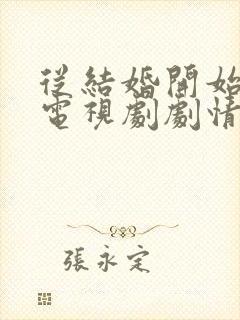 從結婚開始
電視劇劇情
張永定